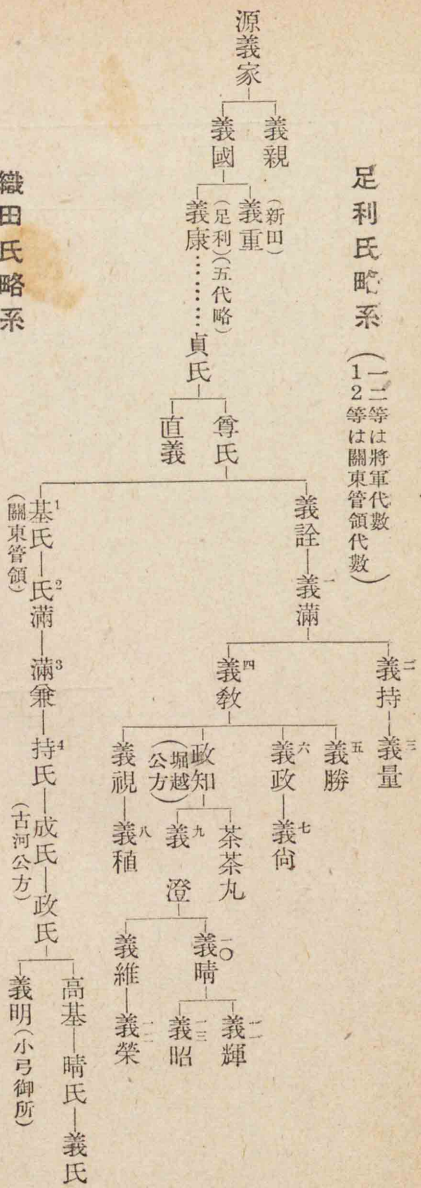 足利氏略系（一二等は將軍代數
1 2等は關東管領代數）
源義家
義親
義國
(新田)
義重
(足利)(五代略)
義康………貞氏
尊氏
直義
義詮—義滿一
義持二—義量三
義教四
義勝五
義政六—義尙七
政知
(堀越公方)
茶茶丸
義澄九
義晴一〇
義輝一一
義昭一三
義維—義榮一二
義視—義稙八
基氏1—氏滿2—滿兼3—持氏4—成氏—政氏
(關東管領)
(古河公方)
高基—晴氏—義氏
義明(小弓御所)
織田氏略系